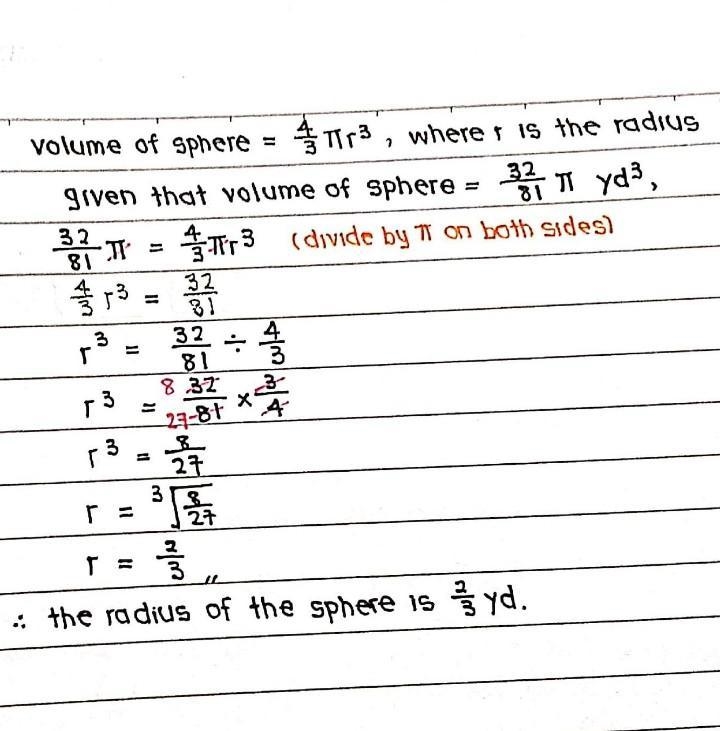 volume of sphere = 4/3 πr³, where r is the radius
given that volume of sphere = 32/81 π yd³,
32/81 π = 4/3 πr³ (divide by π on both sides)
4/3 r³ = 32/81
r³ = 32/81 ÷ 4/3
r³ = 8 32/27 81 × 3/4
r³ = 8/27
r = ³√8/27
r = 2/3 〃
∴ the radius of the sphere is 2/3 yd.